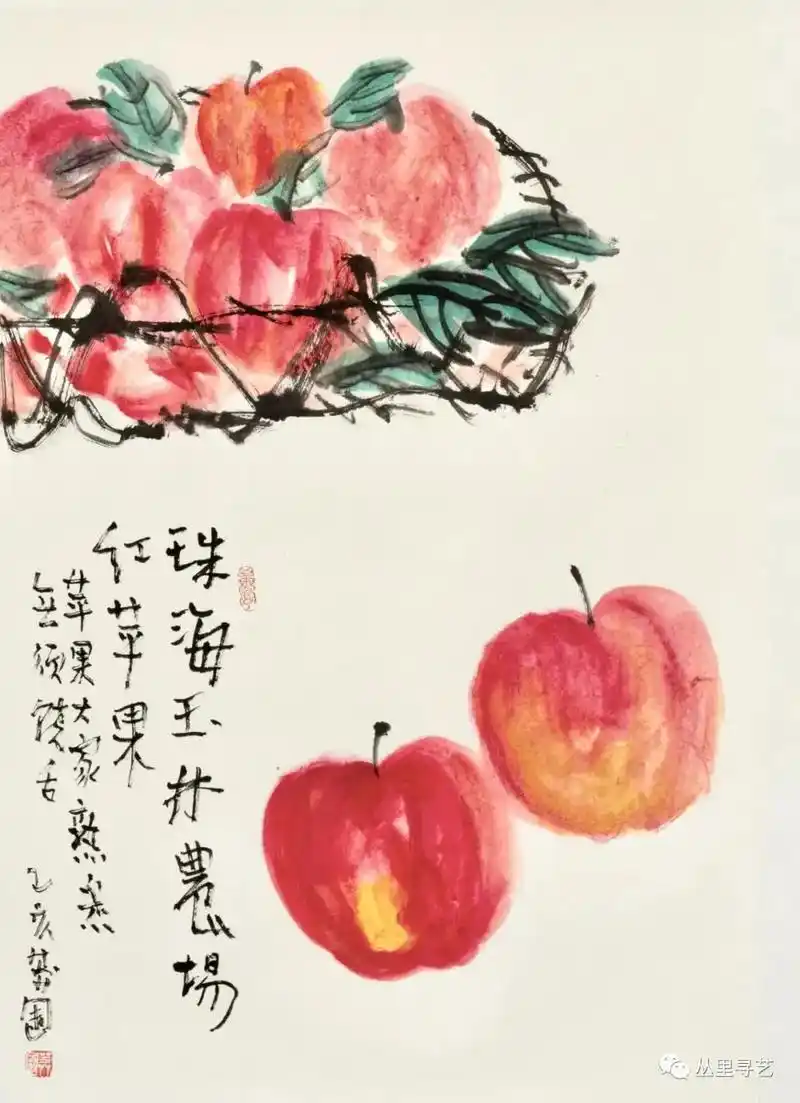 珠海玉林農場
紅苹果
苹果大家熟悉
無須饒舌
乙亥
丛里寻艺